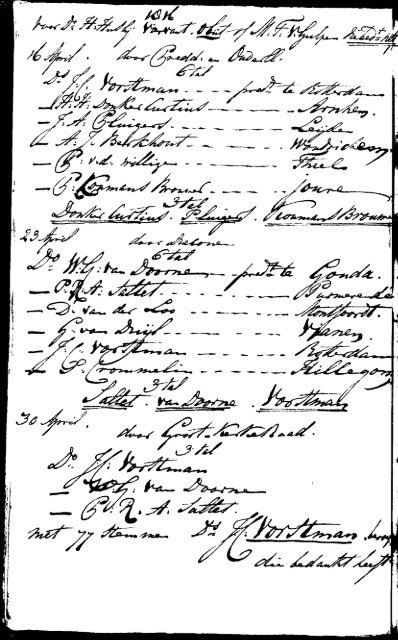 1816
voor Ds H: Vacant. Obiit of M. F. V. Gulpen
16 April. door Predd: en Ouderl:
6 tal
Ds J. C. Vorstman - - - predt te Rotterdam
— H. H. Donker Curtius - - - Arnhem.
— J. A. Pluigers - - - Leijden
— A. J. Berkhout - - - Woudrichem
— P. v.d. Willigen - - - Thiel
— P. Koomans Brouwer - - - Joure
3 tal
Donker Curtius. Pluigers. Koomans Brouwer
23 April door Diacone
6 tal
Do W. G: van Doorne - predt te Gouda.
— P. R. A: Sattet. - - - Purmerende
— D. van der Loo - - - Montfoordt
— G. van Druijl - - - Vianen
— J. C. Vorstman - - - Rotterdam
— P. Crommelin - - - Hillegom
3 tal
Sattet. van Doorne. Vorstman
30 April. door Groot-KerkeRaad.
3 tal
Do J. C. Vorstman
— W. G: van Doorne
— P. R. A. Sattet.
met 77 stemmen Ds J. C. Vorstman
die bedankt heeft